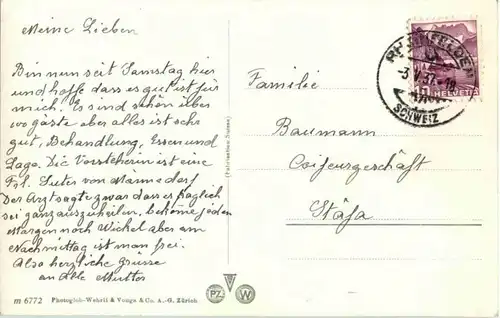 Meine Lieben
Bin nun seit Samstag hier
und hoffe dass es gut ist für
mich. Es sind schon über
80 gäste aber alles ist sehr
gut, Behandlung, Essen und
Lage. Die Vorsteherin ist eine
Frl. Suter von Männedorf
Der Arzt sagte zwar dass es fraglich
sei ganz auszuheilen, bekome jeden
Morgen noch Wickel aber am
Nachmittag ist man frei.
Also herzliche Grüsse
an Alle Mutter
m 6772 Photogloh-Wehrli & Vouga & Co. A.-G. Zürich
PZ W
RHEINFELDEN
SCHWEIZ
10 HELVETIA
Familie
Baumann
Coifeurgeschäft
Stäfa